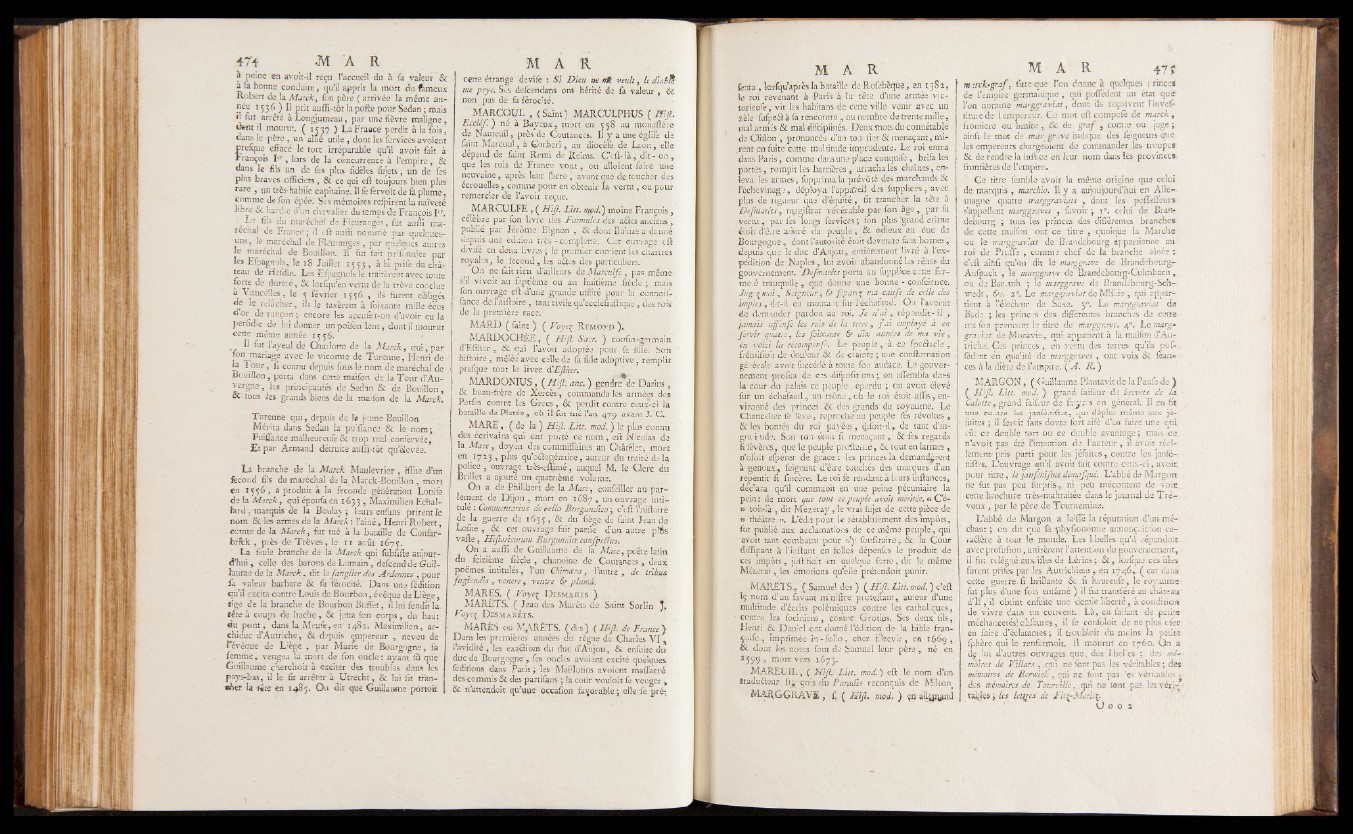 474 M A R
à peine en avoit-il reçu l'accueil du à sa valeur &
à sa bonne conduite, qu'il apprit la mort du fameux
Robert de la Marck, son père (arrivée la même an-
née 1536) Il prit aussi-tôt la poste pour Sedan ; mais
il fut arrêté à Longjumeau, par une fièvre maligne,
dont il mourut. (1537) La France perdit à la fois,
dans le père, un allié utile, dont les services avoient
presque effacé le tort irréparable qu'il avoit fait à
François Ier, lors de la concurrence à l'empire, &
dans le fils un de ses plus fidèles sujets, un de ses
plus braves officiers, & ce qui est toujours bien plus
rare, un très-habile capitaine. Il se servoit de sa plume,
comme de son épée. Ses mémoires respirent la naïveté
libre & hardie d'un chevalier du temps de François Ier.
Le fils du maréchal de Fleuranges, fut aussi ma-
réchal de France ; il est aussi nommé par quelques-
uns, le maréchal de Fleuranges, par quelques autres
le maréchal de Bouillon. Il fut fait prisonnier par
les Espagnols, le 18 Juillet 1553, à la prise du châ-
teau de Hesdin. Les Espagnols le traitèrent avec toute
sorte de dureté, & lorsqu'en vertu de la trêve conclue
à Vaucelles, le 5 février 1556, ils furent obligés
de le relâcher, ils le taxèrent à soixante mille écus
d'or de rançon ; encore les accuse-t-on d'avoir eu la
perfidie de lui donner un poison lent, dont il mourut
cette même année 1556.
Il fut l'ayeul de Charlotte de la Marck, qui, par
son mariage avec le vicomte de Turenne, Henri de
la Tour, si connu depuis sous le nom de maréchal de
Bouillon, porta dans cette maison de la Tour d'Au-
vergne, les principautés de Sedan & de Bouillon,
& tous les grands biens de la maison de la Marck.
Turenne qui, depuis de la jeune Bouillon
Mérita dans Sedan la puissance & le nom ;
Puissance malheureuse & trop mal conservée,
Et par Armand détruite aussi-tôt qu'élevée.
La branche de la Marck Maulevrier, issue d'un
second fils du maréchal de la Marck-Bouillon, mort
en 1556, a produit à la seconde génération Louise
de la Marck, qui épousa en 1633, Maximilien Echal-
lard, marquis de la Boulay ; leurs enfans prirent le
nom & les armes de la Marck : l'aîné, Henri Robert,
comte de la Marck, fut tué à la bataille de Consar-
brick, près de Trèves, le 11 août 1675.
La seule branche de la Marck qui subsiste aujour-
d'hui, celle des barons de Lumain, descend de Guil-
laume de la Marck, dit le sanglier des Ardennes, pour
sa valeur barbare & sa férocité. Dans une sédition
qu'il excita contre Louis de Bourbon, évêque de Liège,
tige de la branche de Bourbon Busset, il lui fendit la
tête à coups de hache, & jetta son corps, du haut
du pont, dans la Meuse, en 1482. Maximilien, ar-
chiduc d'Autriche, & depuis empereur, neveu de
l'évêque de Liège, par Marie de Bourgogne, sa
femme, vengea la mort de son oncle : ayant sû que
Guillaume cherchoit à exciter des troubles dans les
pays-bas, il le fit arrêter à Utrecht, & lui fit tran-
cher la tête en 1485. On dit que Guillaume portoit
M A R
cette étrange devise : Si Dieu ne me veult, le diable
me prye. Ses descendans ont hérité de sa valeur, &
non pas de sa férocité.
MARCOUL, (Saint) MARCULPHUS (Hist.
Ecclés.) né à Bayeux, mort en 558 au monastère
de Nanteuil, près de Coutances. Il y a une église de
saint Marcoul, à Corbeni, au diocèse de Laon, elle
dépend de saint Remi de Reims. C'est-là, dit-on,
que les rois de France vont, ou alloient faire une
neuvaine, après leur sacre, avant que de toucher des
écrouelles, comme pour en obtenir la vertu, ou pour
remercier de l'avoir reçue.
MARCULFE, (Hist. Litt. mod.) moine François,
célèbre par son livre des Formules des actes anciens,
publié par Jérôme Bignon, & dont Baluze a donné
depuis une édition très-complette. Cet ouvrage est
divisé en deux livres ; le premier contient les chartres
royales, le second, les actes des particuliers.
On ne sait rien d'ailleurs de Marculfe, pas même
s'il vivoit au septième ou au huitième siècle ; mais
son ouvrage est d'une grande utilité pour la connois-
sance de l'histoire, tant civile qu'ecclésiastique, des rois
de la première race.
MARD (saint) (Voyez REMOND).
MARDOCHÉE, (Hist. Sacr.) cousin-germain
d'Esther, & qui l'avoit adoptée pour sa fille. Son
histoire, mêlée avec celle de sa fille adoptive, remplit
presque tout le livre d'Esther.
MARDONIUS, (Hist. anc.) gendre de Darius,
& beau-frère de Xercès, commanda les armées des
Perses contre les Grecs, & perdit contre ceux-ci la
bataille de Platée, où il fut tué l'an 479 avant J. C.
MARE, (de la) (Hist. Litt. mod.) le plus connu
des écrivains qui ont porté ce nom, est Nicolas de
la Mare, doyen des commissaires au Châtelet, mort
en 1723, plus qu'octogénaire, auteur du traité de la
police, ouvrage très-estimé, auquel M. le Clerc du
Brillet a ajouté un quatrième volume.
On a de Philibert de la Mare, conseiller au par-
lement de Dijon, mort en 1687, un ouvrage inti-
tulé : Commentarius de bello Burgundico ; c'est l'histoire
de la guerre de 1635, & du siège de saint Jean de
Losne, & cet ouvrage fait partie d'un autre plus
vaste, Historicorum Burgundiæ conspectus.
On a aussi de Guillaume de la Mare, poëte latin
du seizième siècle, chanoine de Coutances, deux
poëmes intitulés, l'un Chimæra, l'autre, de tribus
fugiendis, venere, ventre & plumâ.
MARES. (Voyez DESMARES).
MARETS. (Jean des Marets de Saint Sorlin).
Voyez DESMARETS.
MARÈS ou MARÊTS. (des) (Hist. de France)
Dans les premières années du règne de Charles VI,
l'avidité, les exactions du duc d'Anjou, & ensuite du
duc de Bourgogne, ses oncles avoient excité quelques
séditions dans Paris ; les Maillotins avoient massacré
des commis & des partisans ; la cour vouloit se venger,
& n'attendoit qu'une occasion favorable ; elle se pré-
M A R
senta, lorsqu'après la bataille de Rosebèque, en 1382,
le roi revenant à Paris à la tête d'une armée vic-
torieuse, vit les habitans de cette ville venir avec un
zèle suspect à sa rencontre, au nombre de trente mille,
mal armés & mal disciplinés. Deux mots du connétable
de Clisson, prononcés d'un ton fier & menaçant, mi-
rent en fuite cette multitude imprudente. Le roi entra
dans Paris, comme dans une place conquise, brisa les
portes, rompit les barrières, arracha les chaînes, en-
leva les armes, supprima la prévôté des marchands &
l'échevinage, déploya l'appareil des supplices, avec
plus de rigueur que d'équité, fit trancher la tête à
Desmarêts, magistrat vénérable par son âge, par sa
vertu, par ses longs services ; son plus grand crime
étoit d'être adoré du peuple, & odieux au duc de
Bourgogne, dont l'autorité étoit devenue sans bornes,
depuis que le duc d'Anjou, entièrement livré à l'ex-
pédition de Naples, lui avoit abandonné les rênes du
gouvernement. Desmarêts porta au supplice cette fer-
meté tranquille, que donne une bonne conscience.
Jugez-moi, Seigneur, & séparez ma cause de celle des
impies, dit-il, en montant sur l'échafaud. On l'avertit
de demander pardon au roi. Je n'ai, répondit-il,
jamais offensé les rois de la terre, j'ai employé à en
servir quatre, les soixante & dix années de ma vie,
en voici la récompense. Le peuple, à ce spectacle,
frémissoit de douleur & de crainte ; une consternation
générale avoit succédé à toute son audace. Le gouver-
nement profita de ces dispositions ; on assembla dans
la cour du palais ce peuple éperdu ; on avoit élevé
sur un échafaud, un trône, où le roi étoit assis, en-
vironné des princes & des grands du royaume. Le
Chancelier se lève, reproche au peuple ses révoltes,
& les bontés du roi payées, disoit-il, de tant d'in-
gratitude. Son ton étoit si menaçant, & ses regards
si sévères, que le peuple prosterné, & tout en larmes,
n'osoit espérer de grace : les princes la demandèrent
à genoux, feignant d'être touchés des marques d'un
repentir si sincère. Le roi se rendant à leurs instances,
déclara qu'il commuoit en une peine pécuniaire la
peine de mort que tout ce peuple avoit méritée. « C'é-
» toit-là, dit Mezeray, le vrai sujet de cette pièce de
» théâtre ». L'édit pour le rétablissement des impôts,
fut publié aux acclamations de ce même peuple, qui
avoit tant combattu pour s'y soustraire, & la Cour
dissipant à l'instant en folles dépenses le produit de
ces impôts, justifioit en quelque sorte, dit le même
Mézerai, les émotions qu'elle prétendoit punir.
MARÊTS, (Samuel des) (Hist. Litt. mod.) c'est
le nom d'un savant ministre protestant, auteur d'une
multitude d'écrits polémiques contre les catholiques,
contre les sociniens, contre Grotius. Ses deux fils,
Henri & Daniel ont donné l'édition de la bible fran-
çoise, imprimée in-folio, chez Elzevir, en 1669,
& dont les notes sont de Samuel leur père, né en
1599, mort vers 1673.
MAREUIL, (Hist. Litt. mod.) est le nom d'un
traducteur françois du Paradis reconquis de Milton.
MARGGRAVE, s. (Hist. mod.) en allemand
M A R 475
marck-graf, titre que l'on donne à quelques princes
de l'empire germanique, qui possèdent un état que
l'on nomme marggraviat, dont ils reçoivent l'inves-
titure de l'empereur. Ce mot est composé de marck,
frontière ou limite, & de graf, comte ou juge ;
ainsi le mot de marggrave indique des seigneurs que
les empereurs chargeoient de commander les troupes
& de rendre la justice en leur nom dans les provinces
frontières de l'empire.
Ce titre semble avoir la même origine que celui
de marquis, marchio. Il y a aujourd'hui en Alle-
magne quatre marggraviats, dont les possesseurs
s'appellent marggraves, savoir ; 1°. celui de Bran-
debourg ; tous les princes des différentes branches
de cette maison ont ce titre, quoique la Marche
ou le marggraviat de Brandebourg appartienne au
roi de Prusse, comme chef de la branche aînée :
c'est ainsi qu'on dit le marggrave de Brandebourg-
Anspach, le marggrave de Brandebourg-Culmbach,
ou de Bareuth ; le marggrave de Brandebourg-Sch-
wedt, &c. 2°. Le marggraviat de Misnie, qui appar-
tient à l'électeur de Saxe. 3°. Le marggraviat de
Bade ; les princes des différentes branches de cette
maison prennent le titre de marggrave. 4°. Le marg-
graviat de Moravie, qui appartient à la maison d'Au-
triche. Ces princes, en vertu des terres qu'ils pos-
sèdent en qualité de marggraves, ont voix & séan-
ces à la diète de l'empire. (A. R.)
MARGON, (Guillaume Plantavit de la Pause de)
(Hist. Litt. mod.) grand faiseur de brevets de la
Calotte, grand faiseur de satyres en général. Il en fit
une contre les jansénistes, qui déplut même aux jé-
suites ; il seroit sans doute fort aisé d'en faire une qui
eût ce double tort ou ce double avantage ; mais ce
n'avoit pas été l'intention de l'auteur, il avoit réel-
lement pris parti pour les jésuites, contre les jansé-
nistes. L'ouvrage qu'il avoit fait contre ceux-ci, avoit
pour titre, le jansénisme démasqué. L'abbé de Margon
ne fut pas peu surpris, ni peu mécontent de voir
cette brochure très-maltraitée dans le journal de Tré-
voux, par le père de Tournemine.
L'abbé de Margon a laissé la réputation d'un mé-
chant ; on dit que sa physionomie annonçoit son ca-
ractère à tout le monde. Les libelles qu'il répandoit
avec profusion, attirèrent l'attention du gouvernement,
il fut relégué aux isles de Lérins ; &, lorsque ces isles
furent prises par les Autrichiens, en 1746, (car dans
cette guerre si brillante & si heureuse, le royaume
fut plus d'une fois entamé) il fut transféré au château
d'If, il obtint ensuite une demie liberté, à condition
de vivre dans un couvent. Là, en faisant de petites
méchancetés obscures, il se consoloit de ne plus oser
en faire d'éclatantes ; il troubloit du moins la petite
sphère qui le renfermoit, il mourut en 1760. On a
de lui d'autres ouvrages que des libelles ; des mé-
moires de Villars, qui ne sont pas les véritables ; des
mémoires de Berwick, qui ne sont pas les véritables ;
des mémoires de Tourville, qui ne sont pas les véri-
tables ; les lettres de Fitz-Moritz.
O o o 2